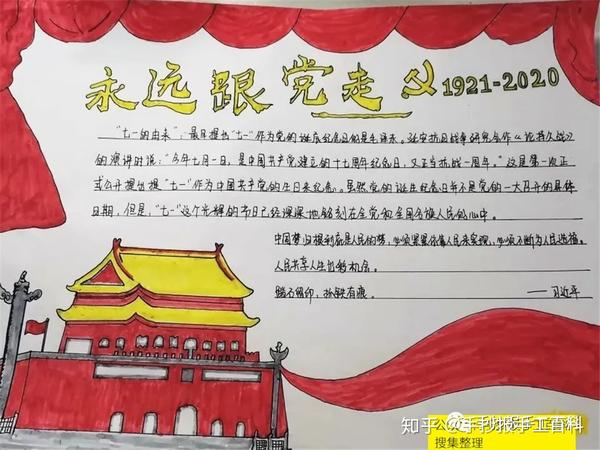 永远跟党走 1921-2020
"七一的由来"：最早提出"七一"作为党的诞辰纪念日的是毛泽东。延安抗日战争研究会作《论持久战》
的演讲时说："今年七月一日，是中国共产党建立的十七周年纪念日，又正当抗战一周年。"这是第一次正
式公开提出把"七一"作为中国共产党的生日来纪念。虽然党的诞生纪念日并不是党的一大召开的具体
日期，但是，"七一"这个光辉的节日已经深深地铭刻在全党和全国各族人民的心中。
中国梦归根到底是人民的梦，必须紧紧依靠人民来实现，必须不断为人民造福。
人民共享人生出彩机会。
踏石留印，抓铁有痕。 ——习近平
知乎 @手抄报手工百科
公
搜集整理